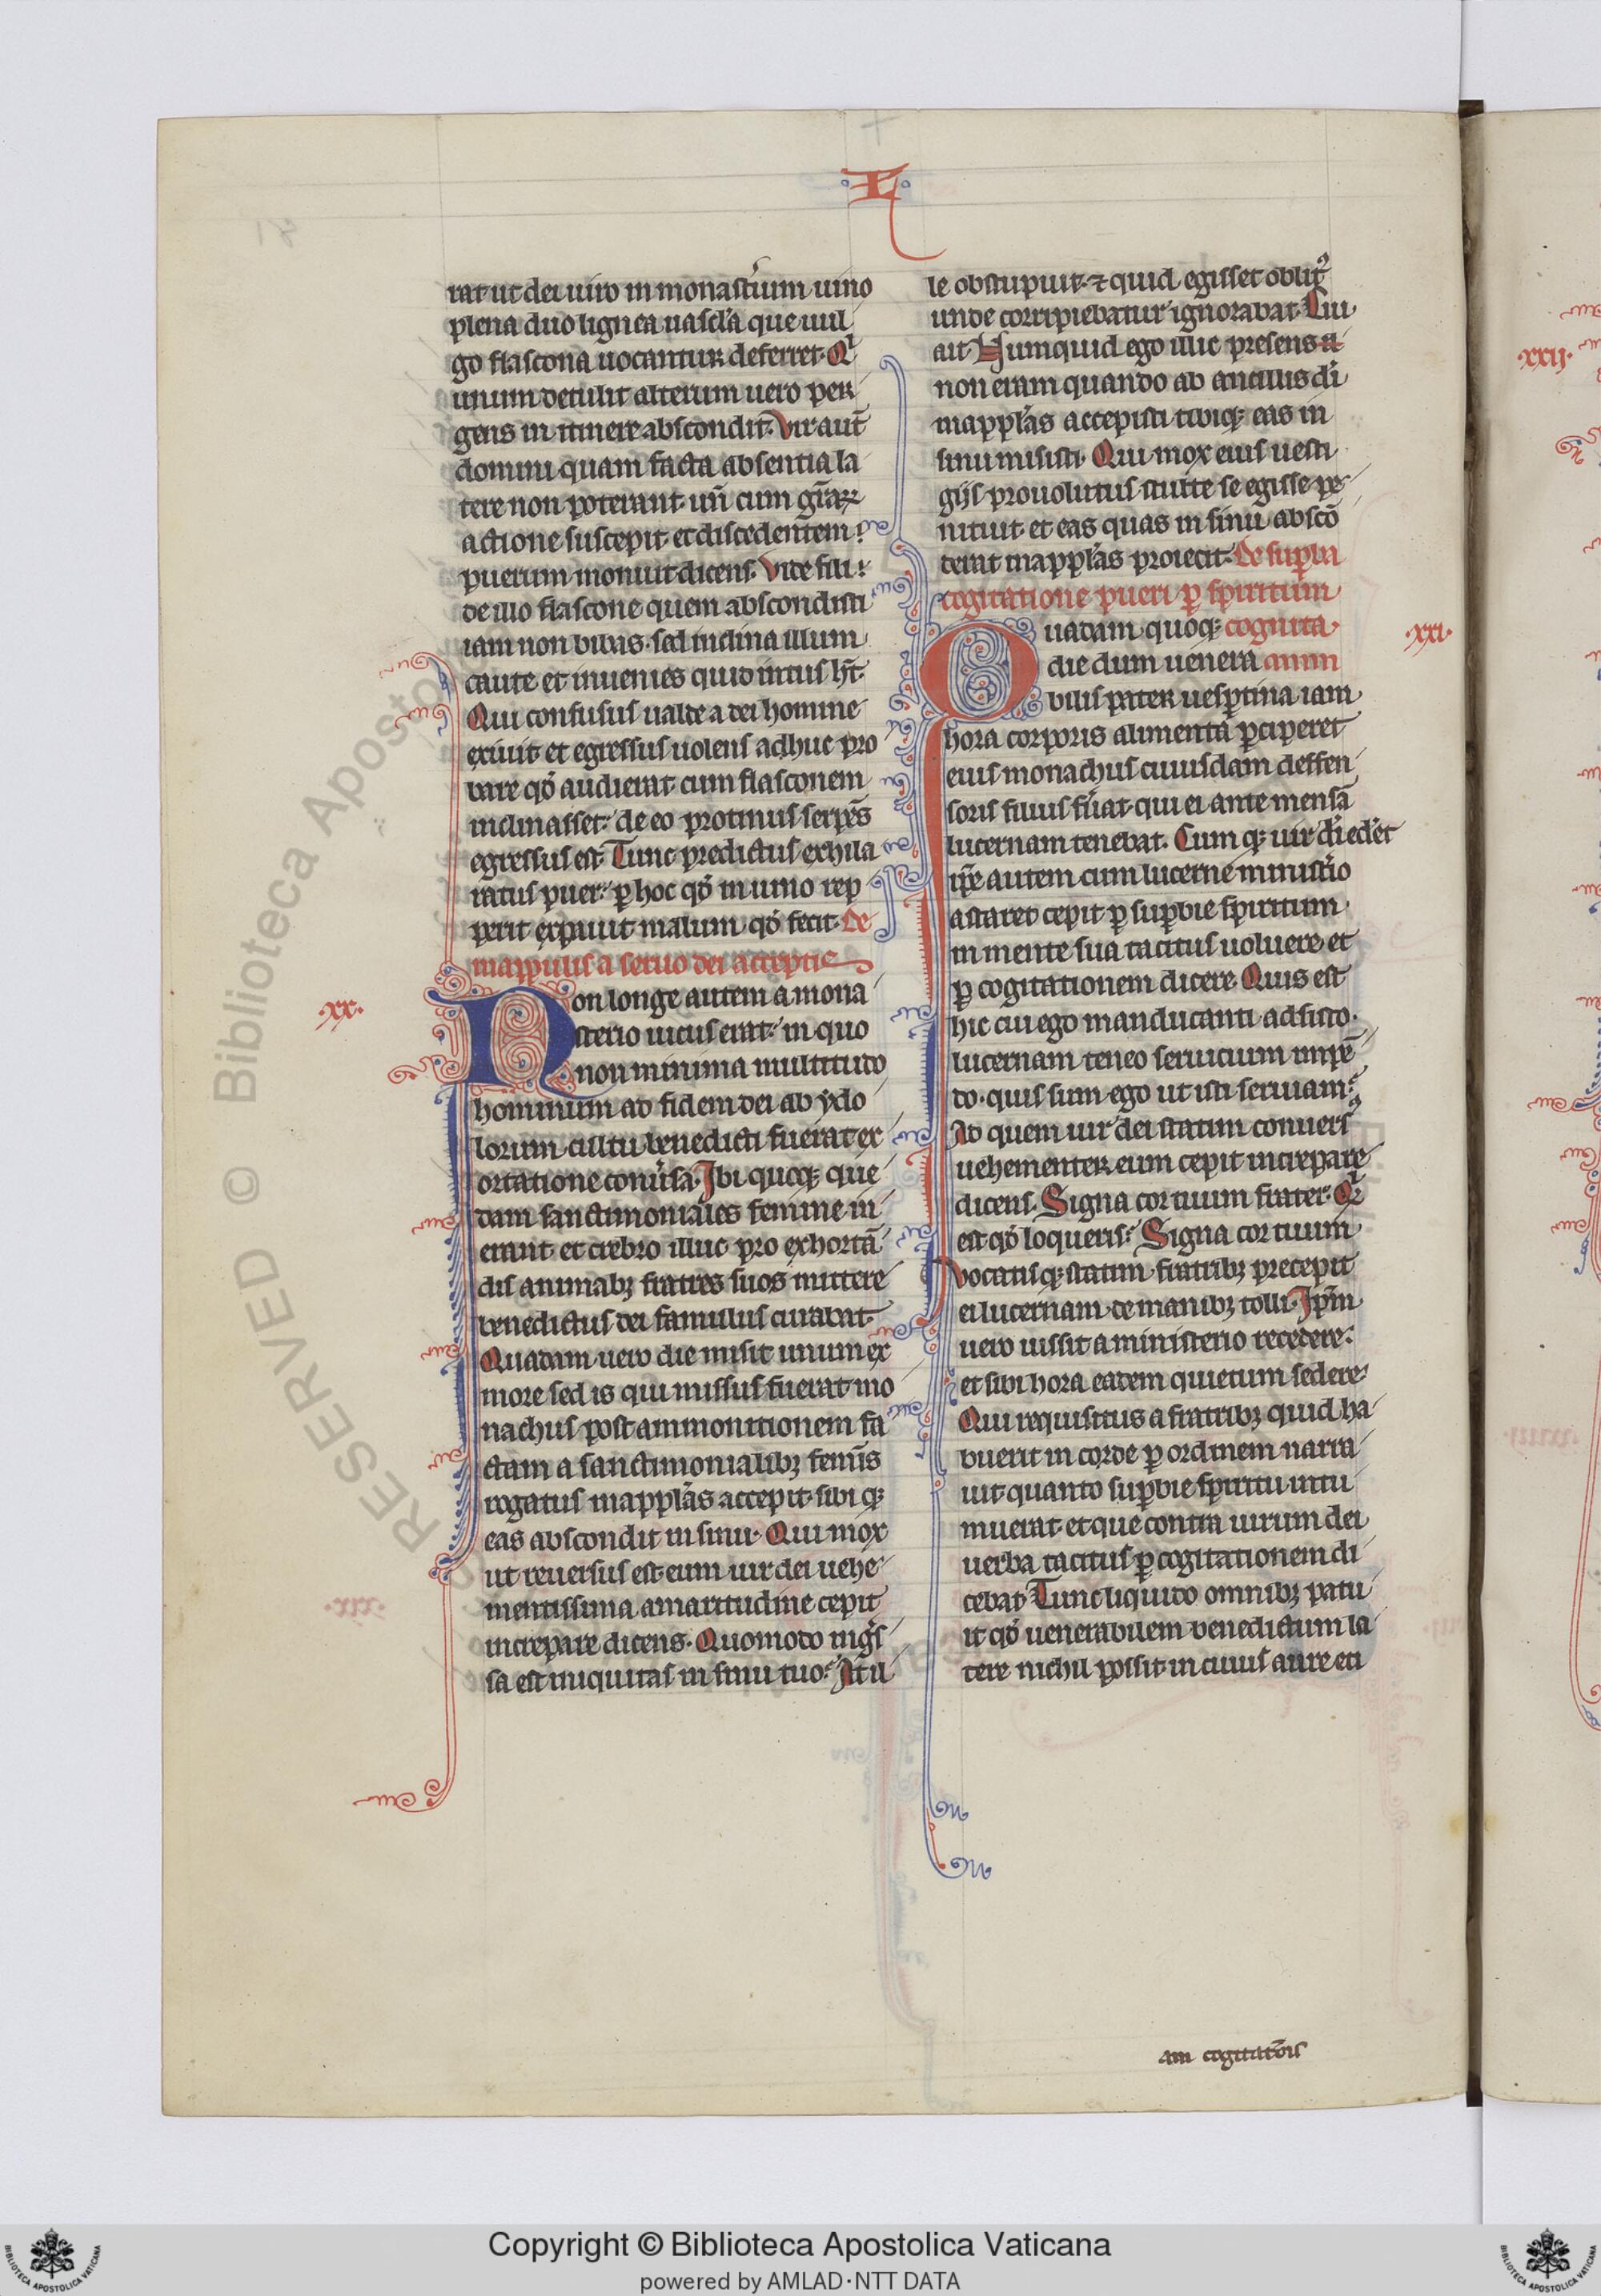 L
rat ut dei uiro in monast'ium uino
plena duo lignea uascl'a que uul
go flascona uocantur deferret. Qi
unum detulit alterum uero per
gens in itinere abscondit. Vir aut̄
domini quam facta absentia la
tere non poterant. un̄ cum gr̄aꝝ
actione suscepit et discedentem
puerum monuit dicens. Vide fili
de illo flascone quem abscondisti
iam non bibas. sed inclina illum
caute et inuenies quid intus h̄t.
Qui confusus ualde a dei homine
exiuit et egressus uolens adhuc pro
bare qd̓ audierat cum flasconem
inclinasset. de eo protinus serpēs
egressus est. Tunc predictus exhila
ratus puer. ꝑ hoc qd̓ in uino rep
perit expauit malum qd̓ fecit. De
mappulis a seruo dei acceptis
.xx.
Non longe autem a mona
sterio uicus erat. in quo
non minima multitudo
hominum ad fidem dei ab ydo
lorum cultu benedicti fuerat ex
ortatione conu'sa. Ibi quoqꝫ que
dam sanctimoniales femine in
erant et crebro illuc pro exhortā
dis animabꝫ fratres suos mittere
benedictus dei famulus curabat
Quadam uero die misit unum ex
more sed is qui missus fuerat mo
nachus post ammonitionem fa
ctam a sanctimonialibꝫ femīs
rogatus mappl'as accepit. sibi qꝫ
eas abscondit in sinu. Qui mox
ut reuersus est. eum uir dei uehe
mentissima amaritudine cepit
increpare dicens. Quomodo ingś
sa est iniquitas in sinu tuo? At il
le obstupuit. ⁊ quid egisset oblit᷒
unde corripiebatur ignorabat. Cui
ait. Numquid ego illuc presens a
non eram quando ab ancillis dī
mappl'as accepisti tibiqꝫ eas in
sinu misisti. Qui mox eius uesti
gijs prouolutus stulte se egisse pe
nituit et eas quas in sinu abscō
derat mappl'as proiecit. De supba
cogitatione pueri ꝑ spiritum
.xxi.
Quadam quoqꝫ cognita.
die dum uenera
bilis pater uesptina iam
hora corporis alimenta ꝑciperet
eius monachus cuiusdam deffen
soris filius fu'at. qui ei ante mensā
lucernam tenebat. Cum qꝫ uir dī ed'et
ip̄e autem cum lucerne minist'io
astaret cepit ꝑ supbie spiritum
in mente sua tacitus uoluere et
ꝑ cogitationem dicere. Quis est
hic cui ego manducanti adsisto.
lucernam teneo seruicium impē
do. quis sum ego ut isti seruiam?
Ad quem uir dei statim conuers᷒
uehementer eum cepit increpare
dicens. Signa cor tuum frater. Qi
est qd̓ loqueris? Signa cor tuum
uocatisqꝫ statim fratribꝫ precepit
ei lucernam de manibꝫ tolli. Ip̄m
uero iussit a ministerio recedere.
et sibi hora eadem quietum sedere
Qui requisitus a fratribꝫ quid ha
buerit in corde ꝑ ordinem narra
uit quanto supbie spiritu intu
muerat et que contra uirum dei
uerba tacitus ꝑ cogitationem di
cebat. Tunc liquido omnibꝫ patu
it qd̓ uenerabilem benedictum la
tere nichil possit in cuius aure eti
am cogitatōis
.xxij.
RESERVED © Biblioteca Apostolica
Copyright © Biblioteca Apostolica Vaticana
powered by AMLAD·NTT DATA
BIBLIOTECA APOSTOLICA VATICANA
BIBLIOTECA APOSTOLICA VATICANA